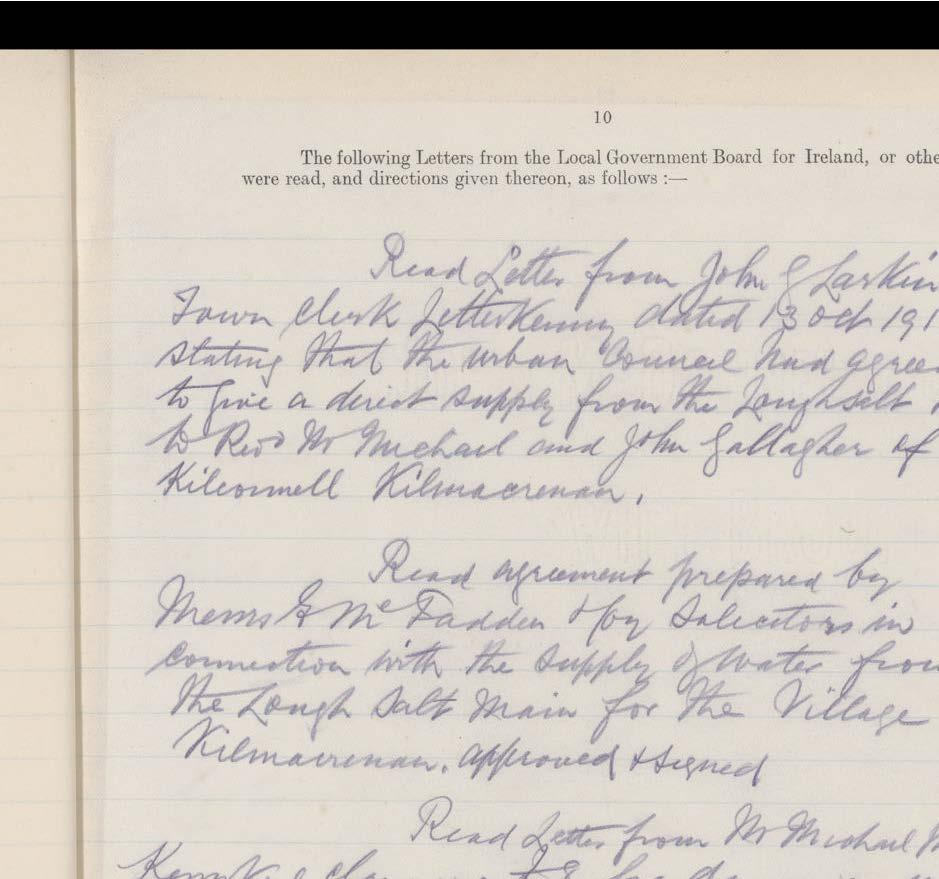 10
The following Letters from the Local Government Board for Ireland, or othe
were read, and directions given thereon, as follows :—
Read Letter from John G Larkin
Town Clerk Letterkenny dated 13 Oct 191
stating that the urban Council had agree
to give a direct supply from the Loughsalt
to Revd Mr Michael and John Gallagher of
Kilconnell Kilmacrenan.
Read agreement prepared by
Messrs McFadden & Solicitors in
connection with the supply of water from
the Lough Salt Main for the Village
Kilmacrenan. approved & signed
Read Letter from Mr Michael